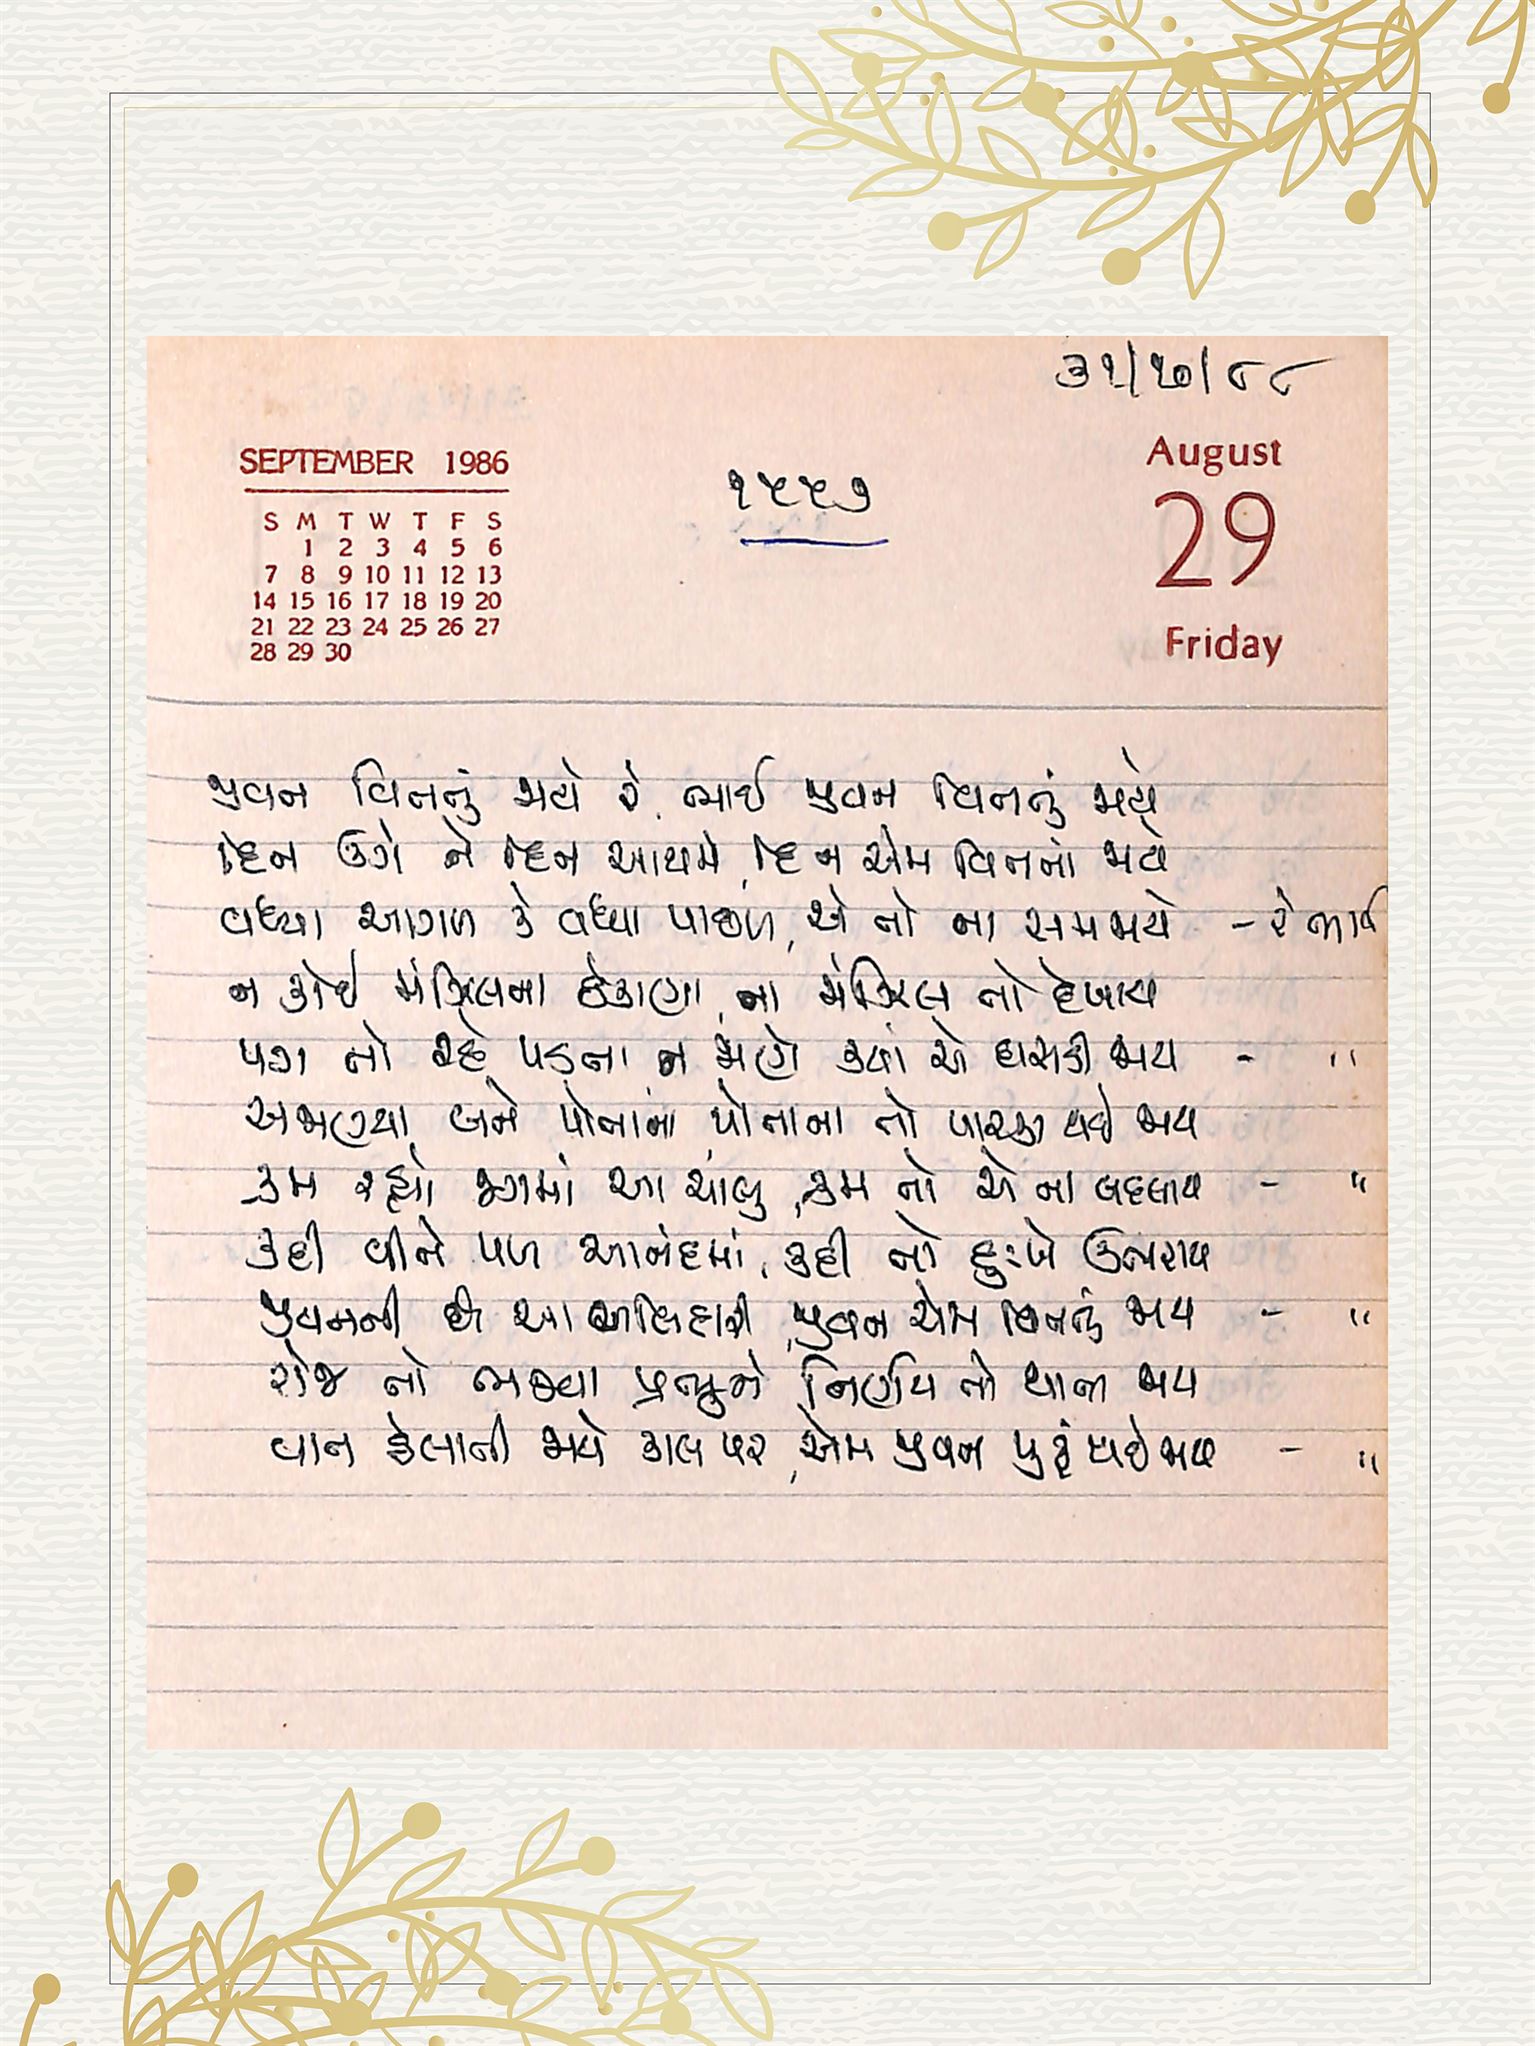 ૩૧/૧૦/૮૮
SEPTEMBER 1986
August
૧૫૫૭
29
S M T W T F S
1 2 3 4 5 6
7 8 9 10 11 12 13
14 15 16 17 18 19 20
21 22 23 24 25 26 27
28 29 30
Friday
જીવન વિતતું જાયે રે, ભાઈ જીવન વિતતું જાયે
દિન ઉગે ને દિન આથમે, દિન એમ વિતતાં જાય
વધ્યા આગળ કે વધ્યા પાછળ, એ તો ના સમજાયે - રે ભાઈ
ન કોઈ મંઝિલના ઠેકાણા, ના મંઝિલ તો દેખાય
પગ તો રહે પડતા, ન જાણે ક્યાં એ ઘસડી જાય - "
અજાણ્યા બને પોતાના, પોતાના તો પારકા થઈ જાય
ક્રમ રહ્યો જગમાં આ ચાલુ, ક્રમ તો એ ના બદલાય - "
કદી વીતે પળ આનંદમાં, કદી તો દુઃખે ઉભરાય
જીવનની છે આ બલિહારી, જીવન એમ વિતતું જાય - "
રોજ તો ભજવા પ્રભુને, નિર્ણય તો થાતા જાય
વાત ઠેલાતી જાયે કાલ પર, એમ જીવન પુરૂં થઈ જાય - "